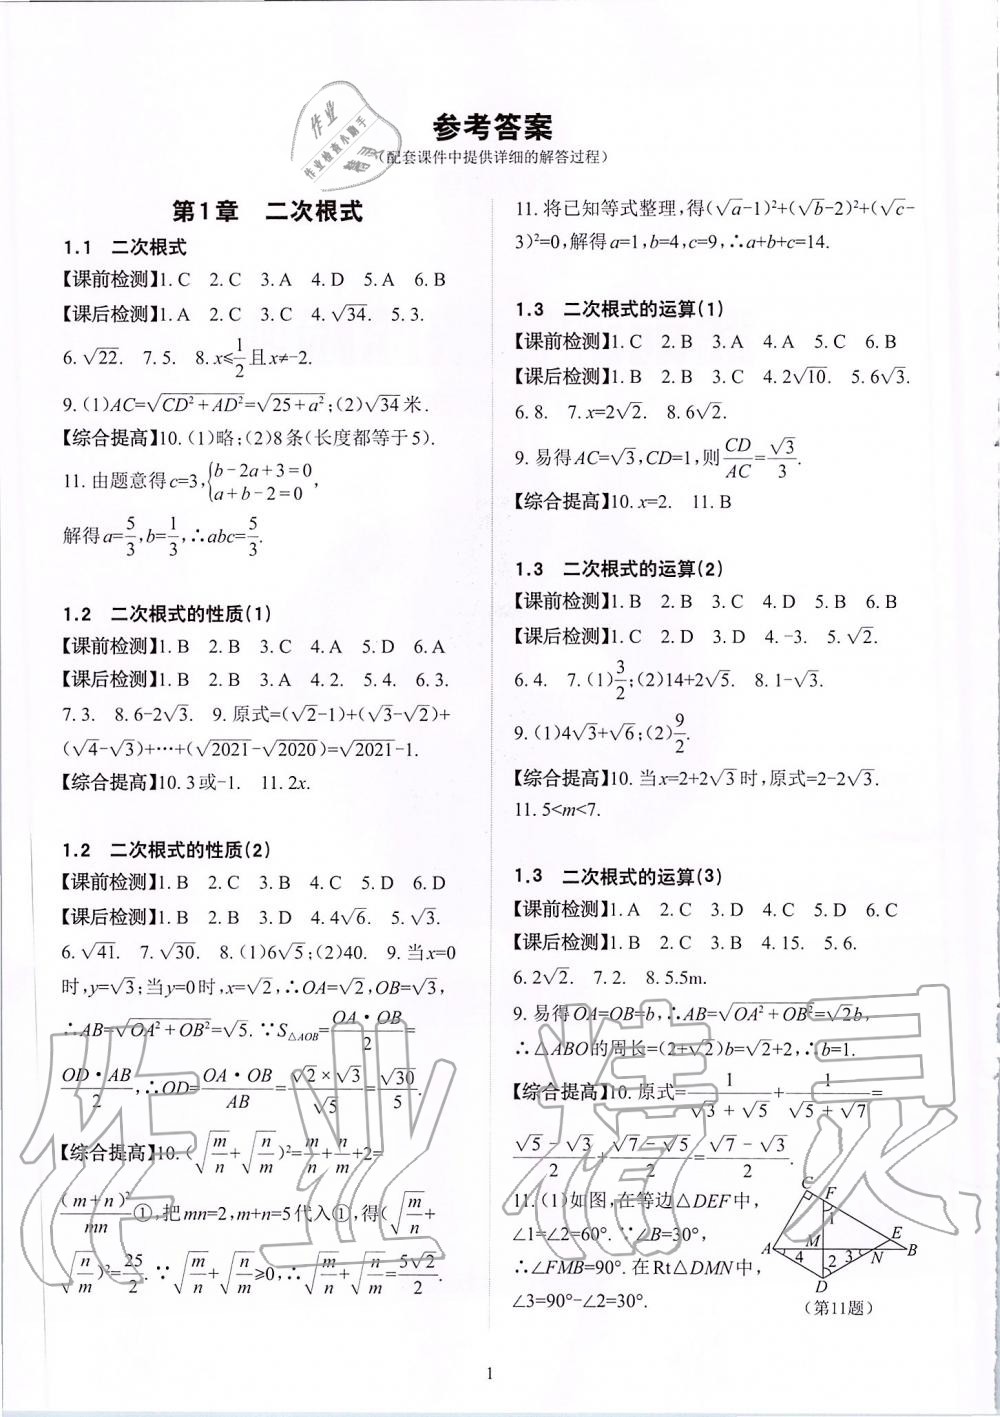 参考答案
(配套课件中提供详细的解答过程)
第1章 二次根式
1.1 二次根式
【课前检测】1. C 2. C 3. A 4. D 5. A 6. B
【课后检测】1. A 2. C 3. C 4. √34. 5. 3.
6. √22. 7. 5. 8. x≤1/2且x≠-2.
9. (1)AC=√(CD²+AD²)=√(25+a²);(2)√34米.
【综合提高】10. (1)略;(2)8条(长度都等于5).
11. 由题意得c=3,{b-2a+3=0
a+b-2=0,
解得a=5/3,b=1/3,∴abc=5/3.
1.2 二次根式的性质(1)
【课前检测】1. B 2. B 3. C 4. A 5. D 6. A
【课后检测】1. B 2. B 3. A 4. 2. 5. 4. 6. 3.
7. 3. 8. 6-2√3. 9. 原式=(√2-1)+(√3-√2)+
(√4-√3)+···+(√2021-√2020)=√2021-1.
【综合提高】10. 3或-1. 11. 2x.
1.2 二次根式的性质(2)
【课前检测】1. B 2. C 3. B 4. C 5. D 6. D
【课后检测】1. B 2. B 3. D 4. 4√6. 5. √3.
6. √41. 7. √30. 8. (1)6√5;(2)40. 9. 当x=0
时,y=√3;当y=0时,x=√2,∴OA=√2,OB=√3,
∴AB=√(OA²+OB²)=√5. ∵S△AOB=(OA·OB)/2=
(OD·AB)/2,∴OD=(OA·OB)/AB=(√2×√3)/√5=√30/5.
【综合提高】10. (√(m/n)+√(n/m))²=m/n+n/m+2=
(m+n)²/mn①,把mn=2,m+n=5代入①,得(√(m/n)+
√(n/m))²=25/2. ∵√(m/n)+√(n/m)≥0,∴√(m/n)+√(n/m)=5√2/2.
11. 将已知等式整理,得(√a-1)²+(√b-2)²+(√c-
3)²=0,解得a=1,b=4,c=9,∴a+b+c=14.
1.3 二次根式的运算(1)
【课前检测】1. C 2. B 3. A 4. A 5. C 6. B
【课后检测】1. B 2. B 3. C 4. 2√10. 5. 6√3.
6. 8. 7. x=2√2. 8. 6√2.
9. 易得AC=√3,CD=1,则CD/AC=√3/3.
【综合提高】10. x=2. 11. B
1.3 二次根式的运算(2)
【课前检测】1. B 2. B 3. C 4. D 5. B 6. B
【课后检测】1. C 2. D 3. D 4. -3. 5. √2.
6. 4. 7. (1)3/2;(2)14+2√5. 8. 1-√3.
9. (1)4√3+√6;(2)9/2.
【综合提高】10. 当x=2+2√3时,原式=2-2√3.
11. 5<m<7.
1.3 二次根式的运算(3)
【课前检测】1. A 2. C 3. D 4. C 5. D 6. C
【课后检测】1. B 2. C 3. B 4. 15. 5. 6.
6. 2√2. 7. 2. 8. 5.5m.
9. 易得OA=OB=b,∴AB=√(OA²+OB²)=√2b,
∴△ABO的周长=(2+√2)b=√2+2,∴b=1.
【综合提高】10. 原式=1/(√3+√5)+1/(√5+√7)=
(√5-√3)/2+(√7-√5)/2=(√7-√3)/2.
11. (1)如图,在等边△DEF中,
∠1=∠2=60°. ∵∠B=30°,
∴∠FMB=90°. 在Rt△DMN中,
∠3=90°-∠2=30°.
C F
1
E
A 4 M 2 3 N B
D
(第11题)
1
作业
作业检查小助手
精灵
作业精灵